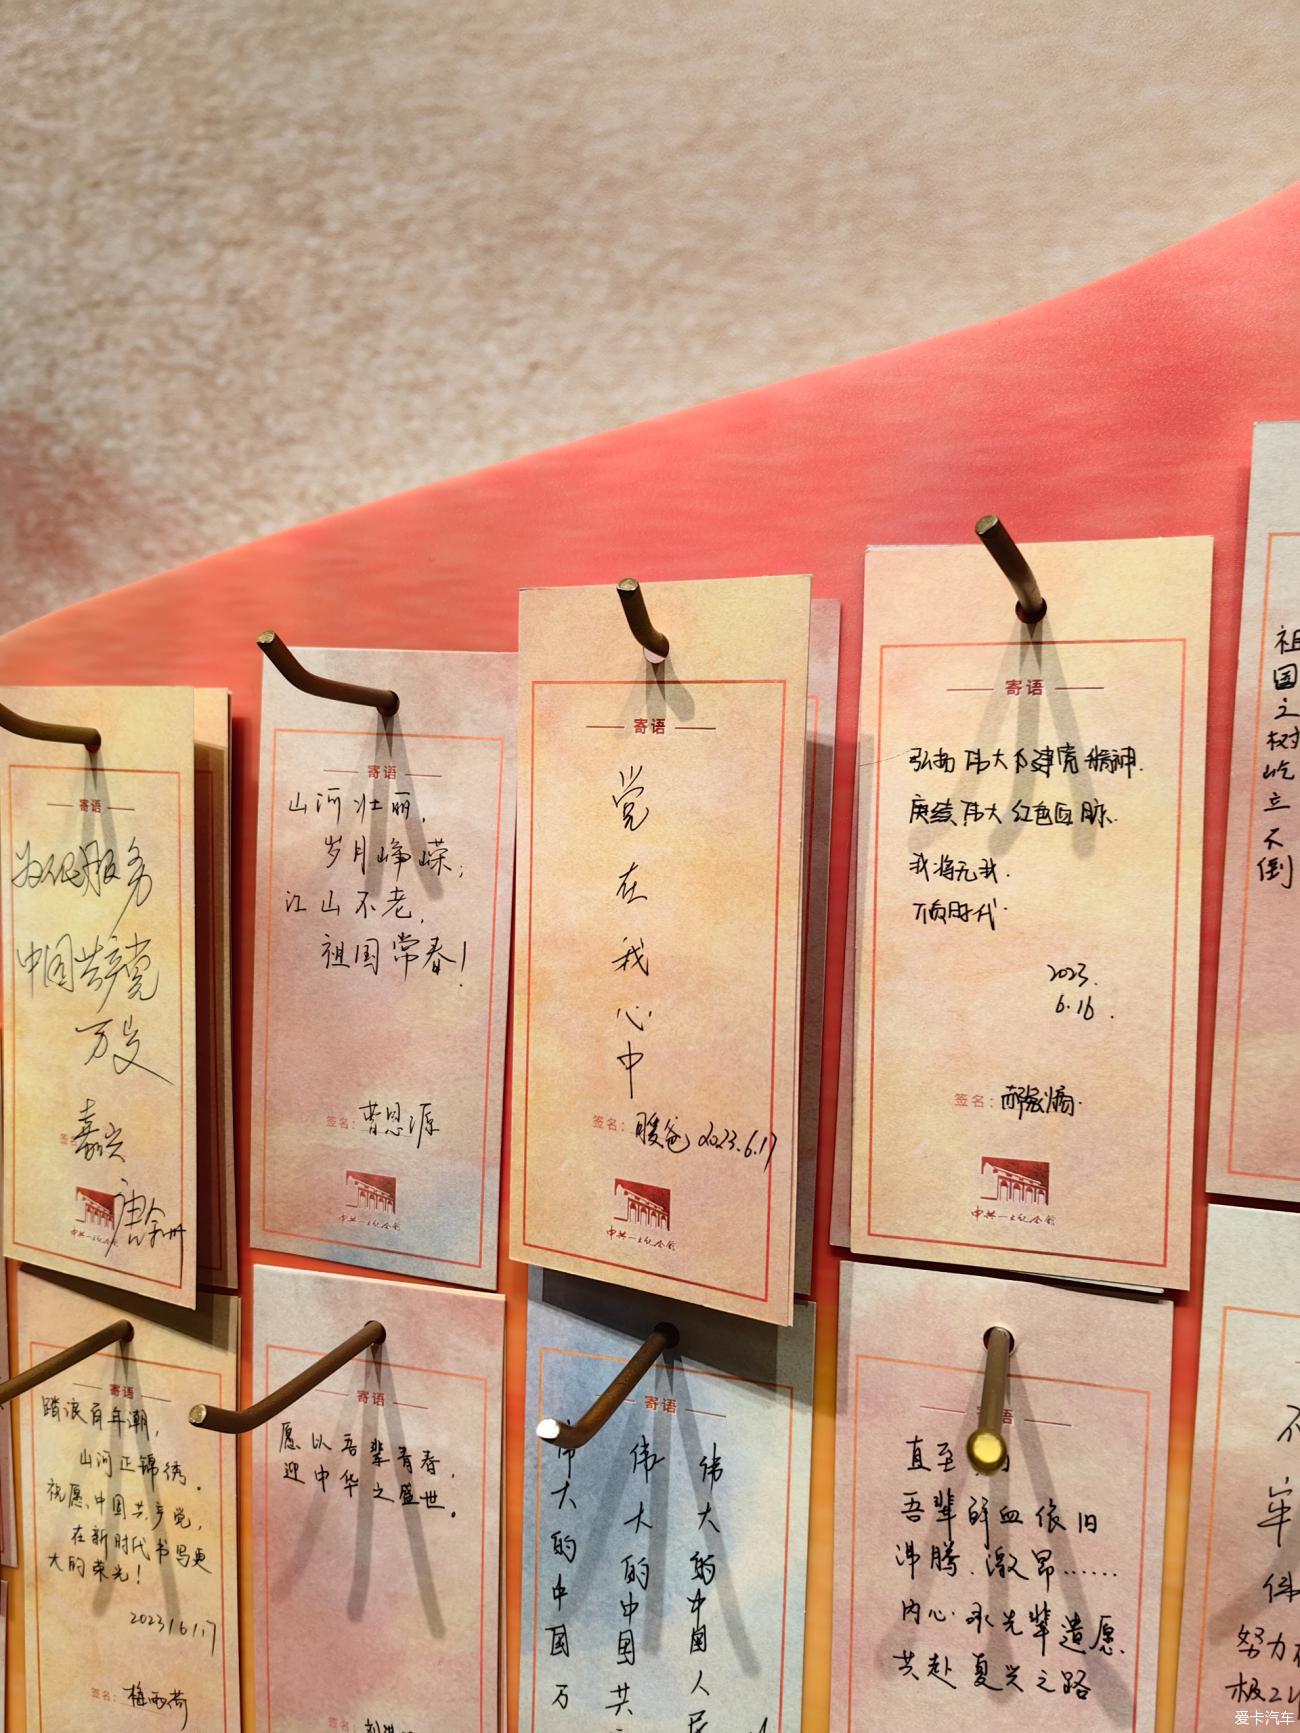 寄语
为人民服务
中国共产党
万岁
嘉兴
寄语
山河壮丽，
岁月峥嵘；
江山不老，
祖国常春！
签名：曹恩源
中共一大纪念馆
寄语
党在我心中
签名：暖爸 2023.6.17
中共一大纪念馆
寄语
弘扬伟大建党精神.
赓续伟大红色血脉.
我将无我.
不负时代.
2023.
6.16.
签名：
中共一大纪念馆
祖国之树屹立不倒
寄语
踏浪百年潮，
山河正锦绣。
祝愿中国共产党，
在新时代书写更
大的荣光！
2023/6/17
签名：梅雨荷
寄语
愿以吾辈青春，
迎中华之盛世。
签名：
寄语
伟大的中国人民
伟大的中国共
伟大的中国万
语
直至
吾辈鲜血依旧
沸腾.激昂……
内心.承先辈遗愿.
共赴复兴之路
努力
爱卡汽车